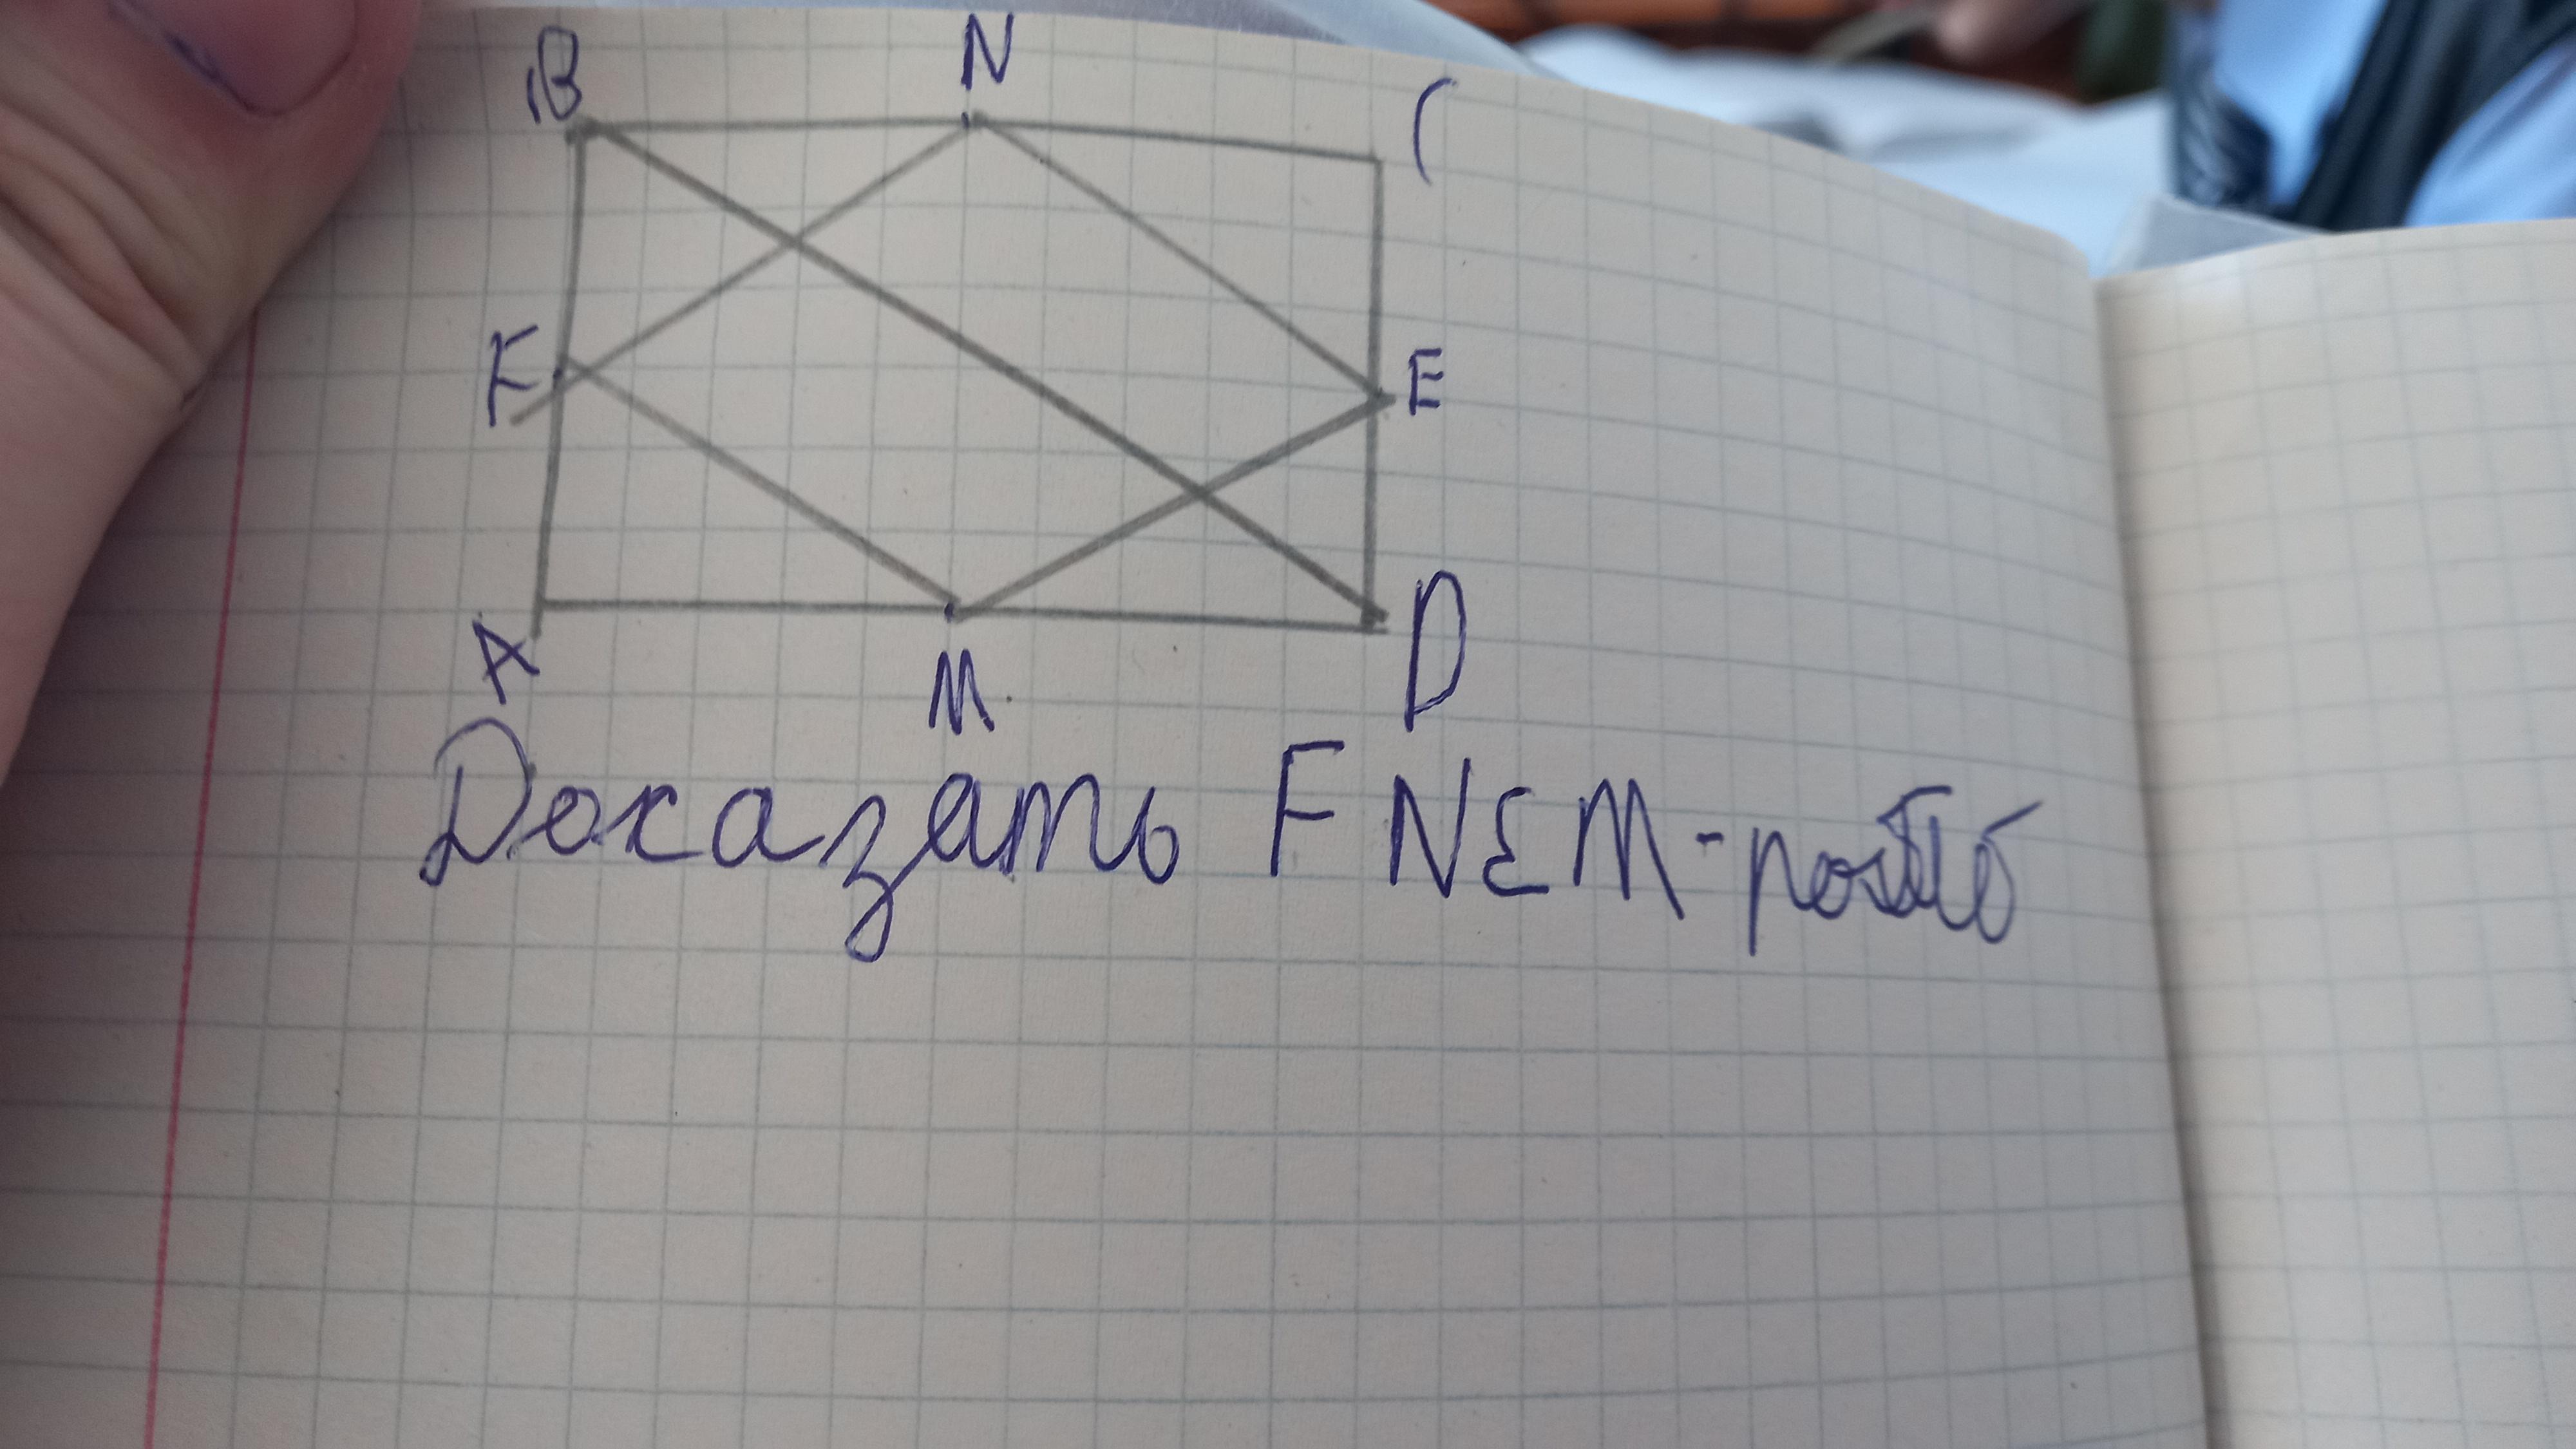 B N C
F E
A M D
Доказать FNEM-ромб